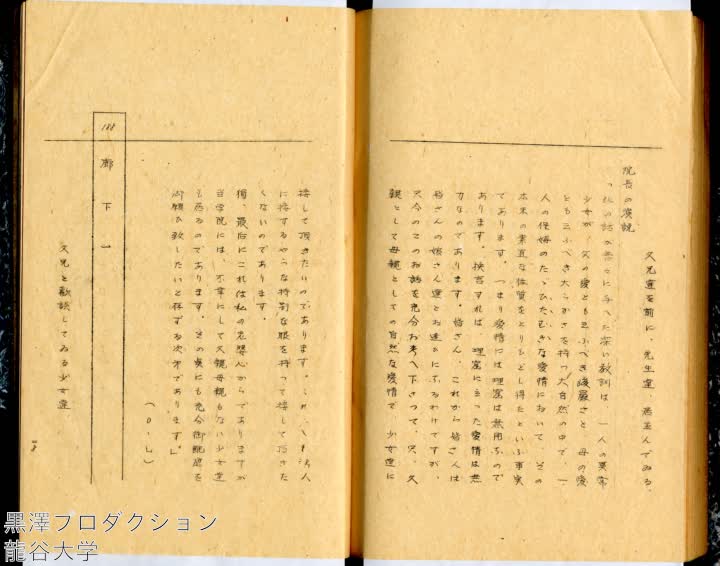 父兄達を前に、先生達、居並んでゐる。
院長の演説
「此の話が吾々に与へた深い教訓は、一人の異常
少女が、父の愛とも云ふべき峻厳さと母の愛
とも云ふべき大らかさを持つ大自然の中で、一
人の保姆のたゞひたむきな愛情において、その
本来の素直な性質をとりもどし得たといふ事実
であります。つまり愛情には理窟は無用なので
あります。換言すれば、理窟に立つた愛情は無
力なのであります。皆さん、これから皆さんは
皆さんの娘さん達とお逢ひになるわけですが、
只今のこのお話を充分お考へ下さつて、只、父
親として母親としての自然な愛情で、少女達に
接して頂きたいのであります。
に接するやうな特別な眼を持つて接して頂きた
くないのであります。
猶、最后にこれは私の老婆心からでありますが
当学院には、不幸にして父親母親もない少女達
も居るのであります。その点にも充分御配慮を
御願ひ致したいと存ずる次第であります。」
(O・L)
188 廊下 一
父兄と歓談してゐる少女達
黒澤プロダクション
龍谷大学